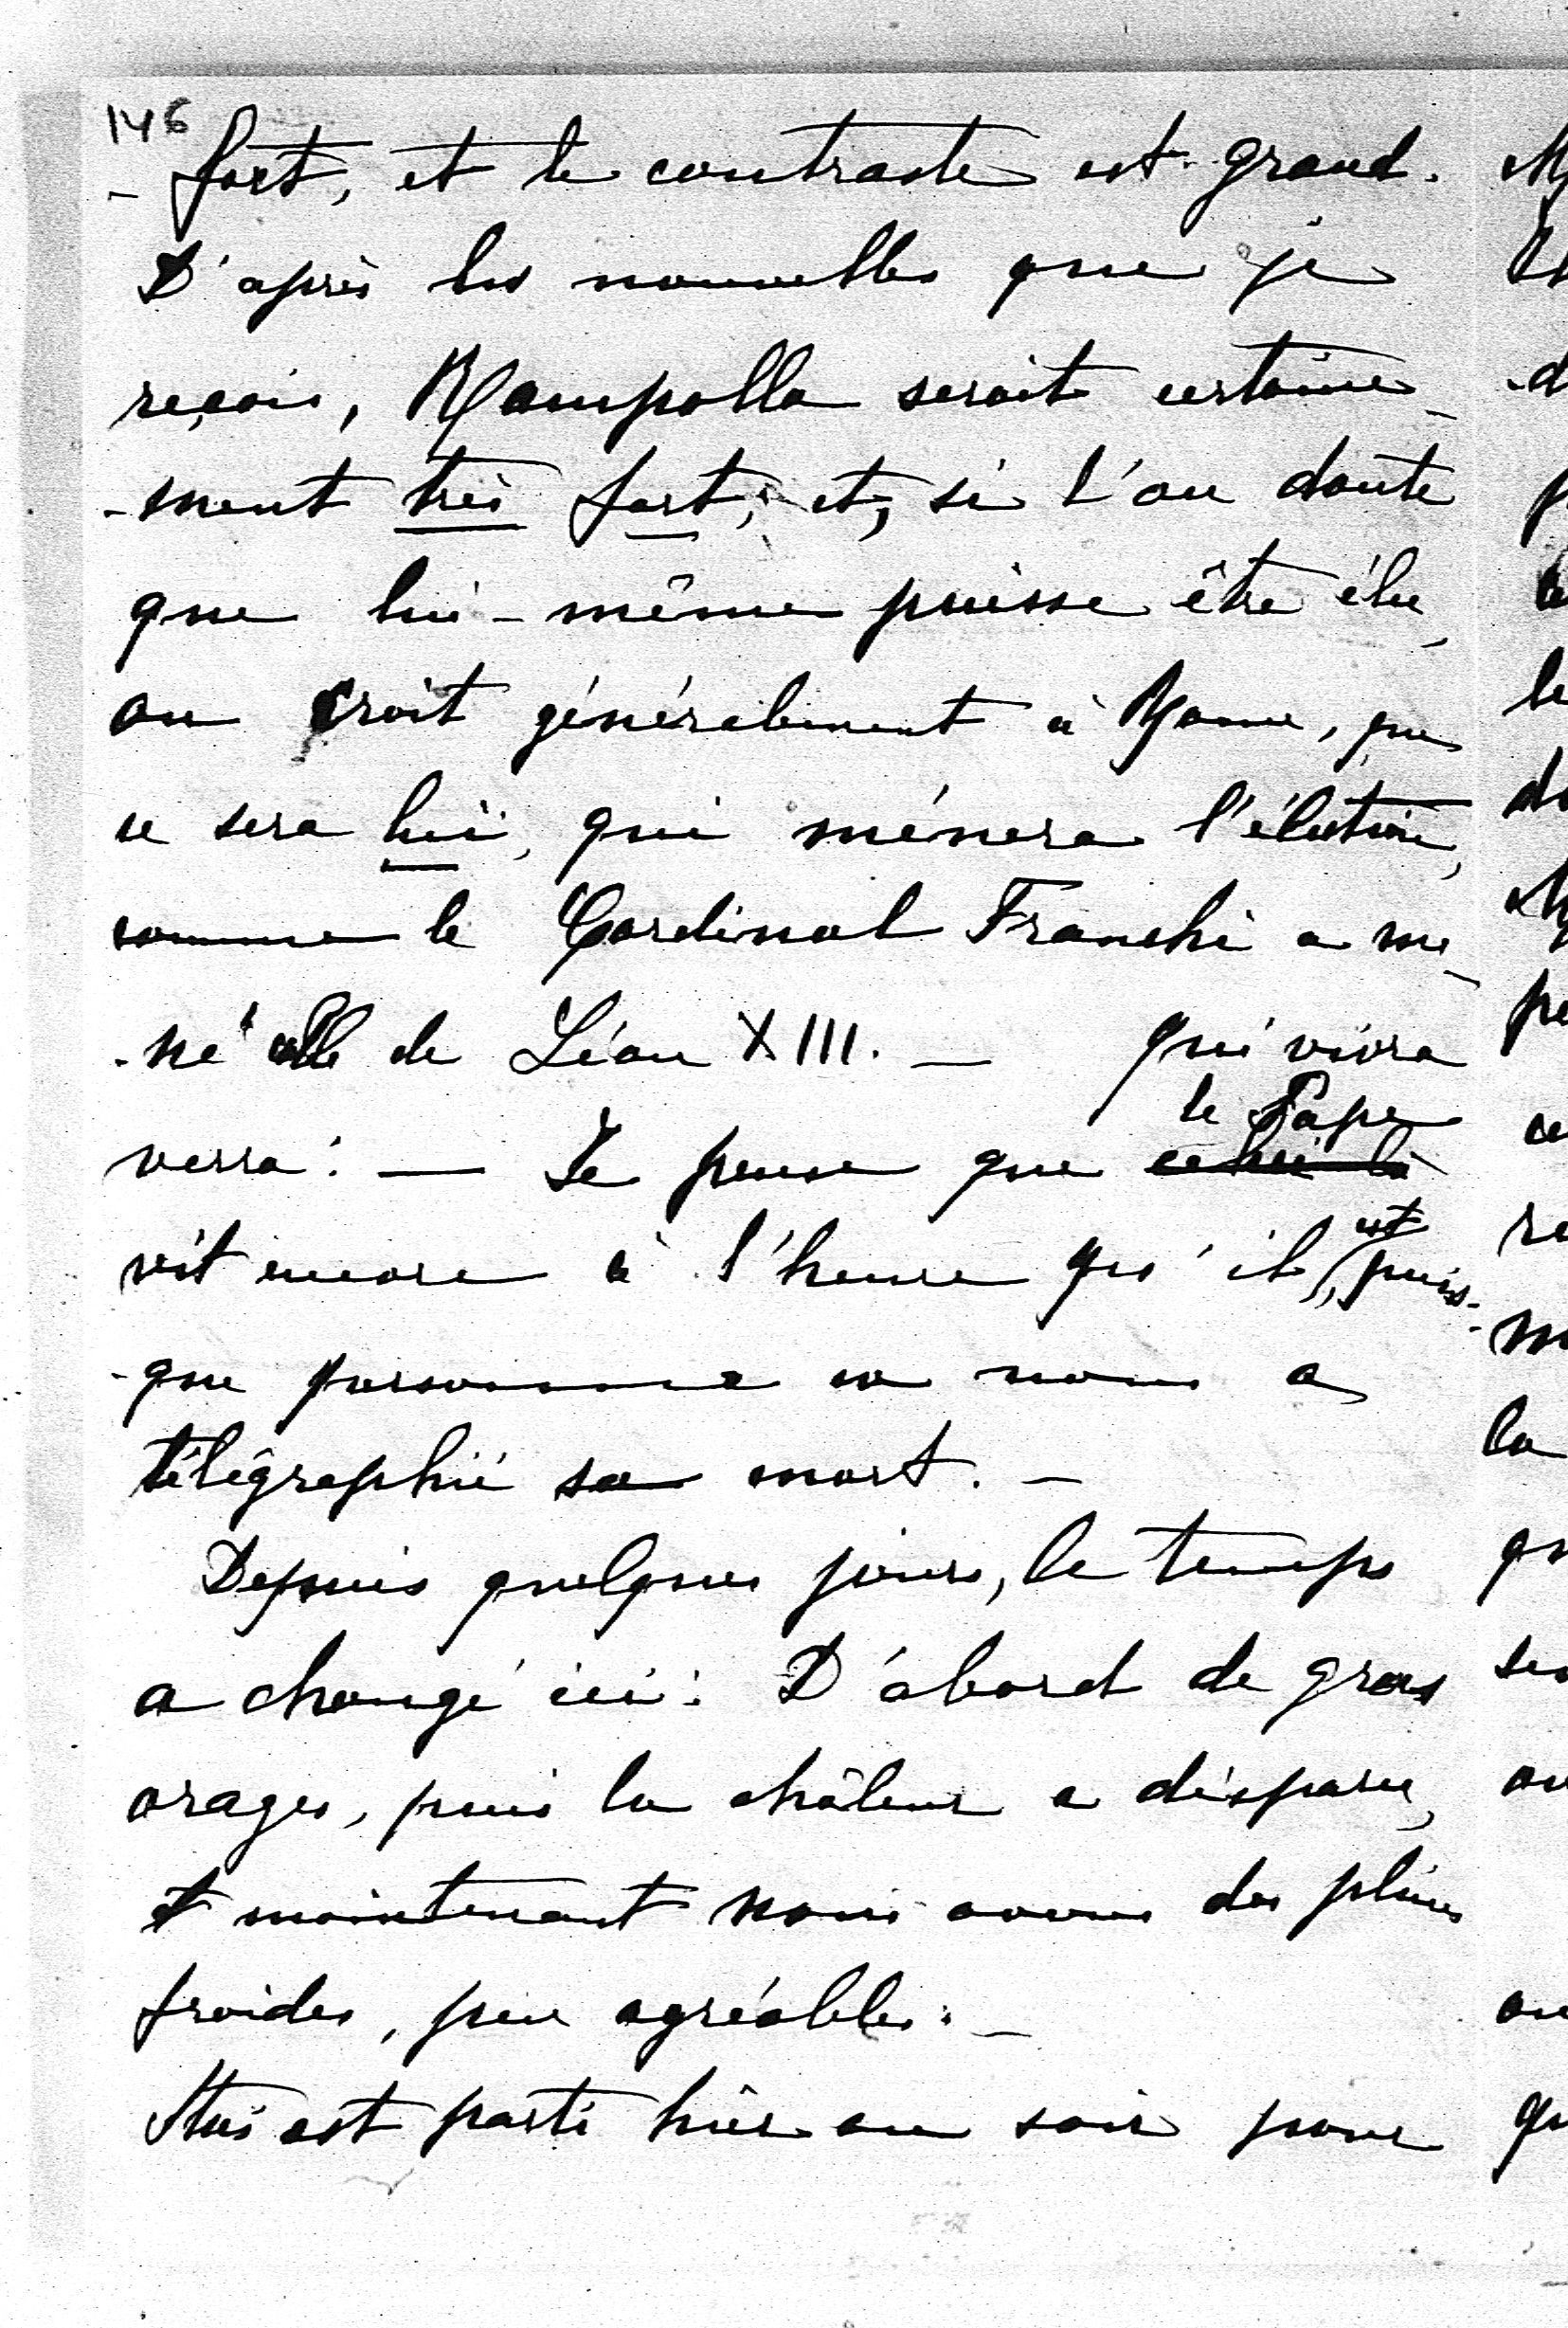 146
- fort, et le contraste est grand.
D'après les nouvelles que je
reçois, Rampolla serait certaine-
-ment très fort, et, si l'on doute
que lui-même puisse être élu,
on croit généralement à Rome, que
ce sera lui, qui mènera l'élection,
comme le Cardinal Franchi a me-
-né celle de Léon XIII. — Qui vivra
verra: — Je pense que celui là le Pape
vit encore à l'heure qu'il est, puis-
-que personne ne nous a
télégraphié sa mort. —
Depuis quelques jours, le temps
a changé ici: D'abord de gros
orages, puis la châleur a disparu,
et maintenant nous avons des pluies
froides, peu agréables. —
est parti hier au soir pour